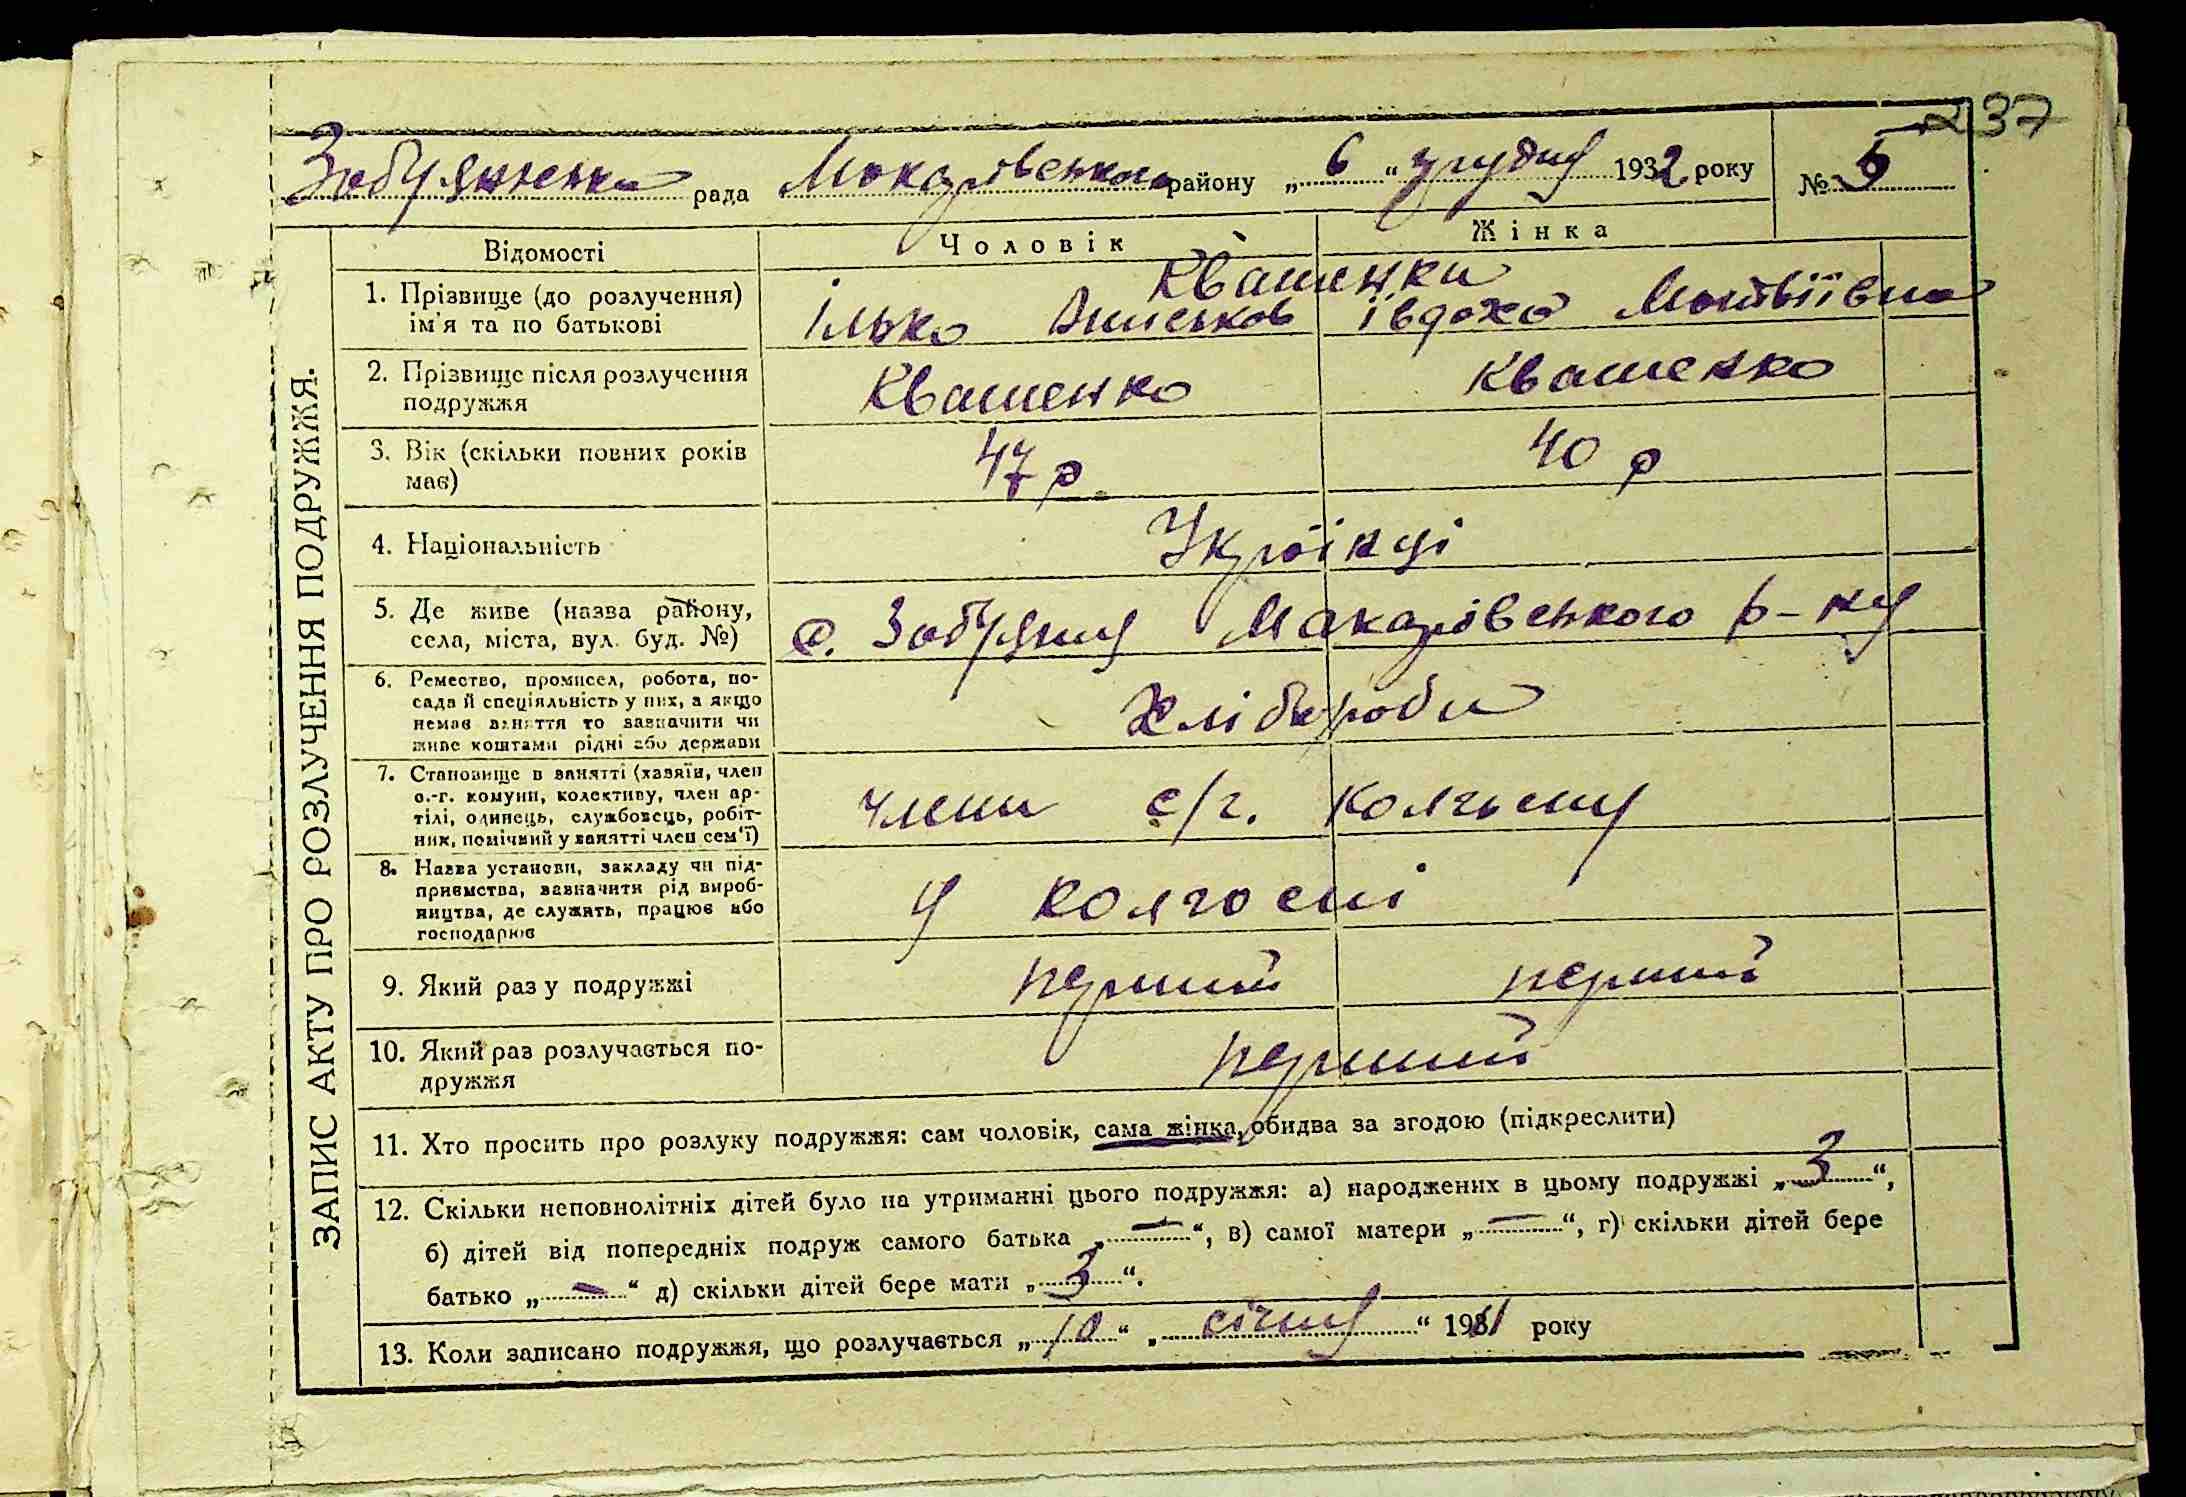 237
Забуянська рада Макарівського району „ 6 “ грудня 1932 року № 5
ЗАПИС АКТУ ПРО РОЗЛУЧЕННЯ ПОДРУЖЖЯ.
Відомості Чоловік Жінка
1. Прізвище (до розлучення) Квашенки
ім'я та по батькові Ілько Євдоха Матвіївна
2. Прізвище після розлучення Квашенко Квашенко
подружжя
3. Вік (скільки повних років 47 р. 40 р
має)
4. Національність Українці
5. Де живе (назва району, с. Забуяння Макарівського р-ну
села, міста, вул. буд. №)
6. Ремество, промисел, робота, по-
сада й спеціяльність у них, а якщо Хлібороби
немає заняття то зазначити чи
живе коштами рідні або держави
7. Становище в занятті (хазяїн, член
с.-г. комуни, колективу, член ар- члени с/г. колгоспу
тілі, одинець, службовець, робіт-
ник, помічний у занятті член сем'ї)
8. Назва установи, закладу чи під-
приємства, зазначити рід вироб- у колгоспі
ництва, де служить, працює або
господарює
9. Який раз у подружжі перший перший
10. Який раз розлучається по- перший
дружжя
11. Хто просить про розлуку подружжя: сам чоловік, сама жінка, обидва за згодою (підкреслити)
12. Скільки неповнолітніх дітей було на утриманні цього подружжя: а) народжених в цьому подружжі „ 3 “,
б) дітей від попередніх подруж самого батька „ — “, в) самої матери „ — “, г) скільки дітей бере
батько „ — “ д) скільки дітей бере мати „ 3 “.
13. Коли записано подружжя, що розлучається „ 10 “ „ січня “ 1911 року